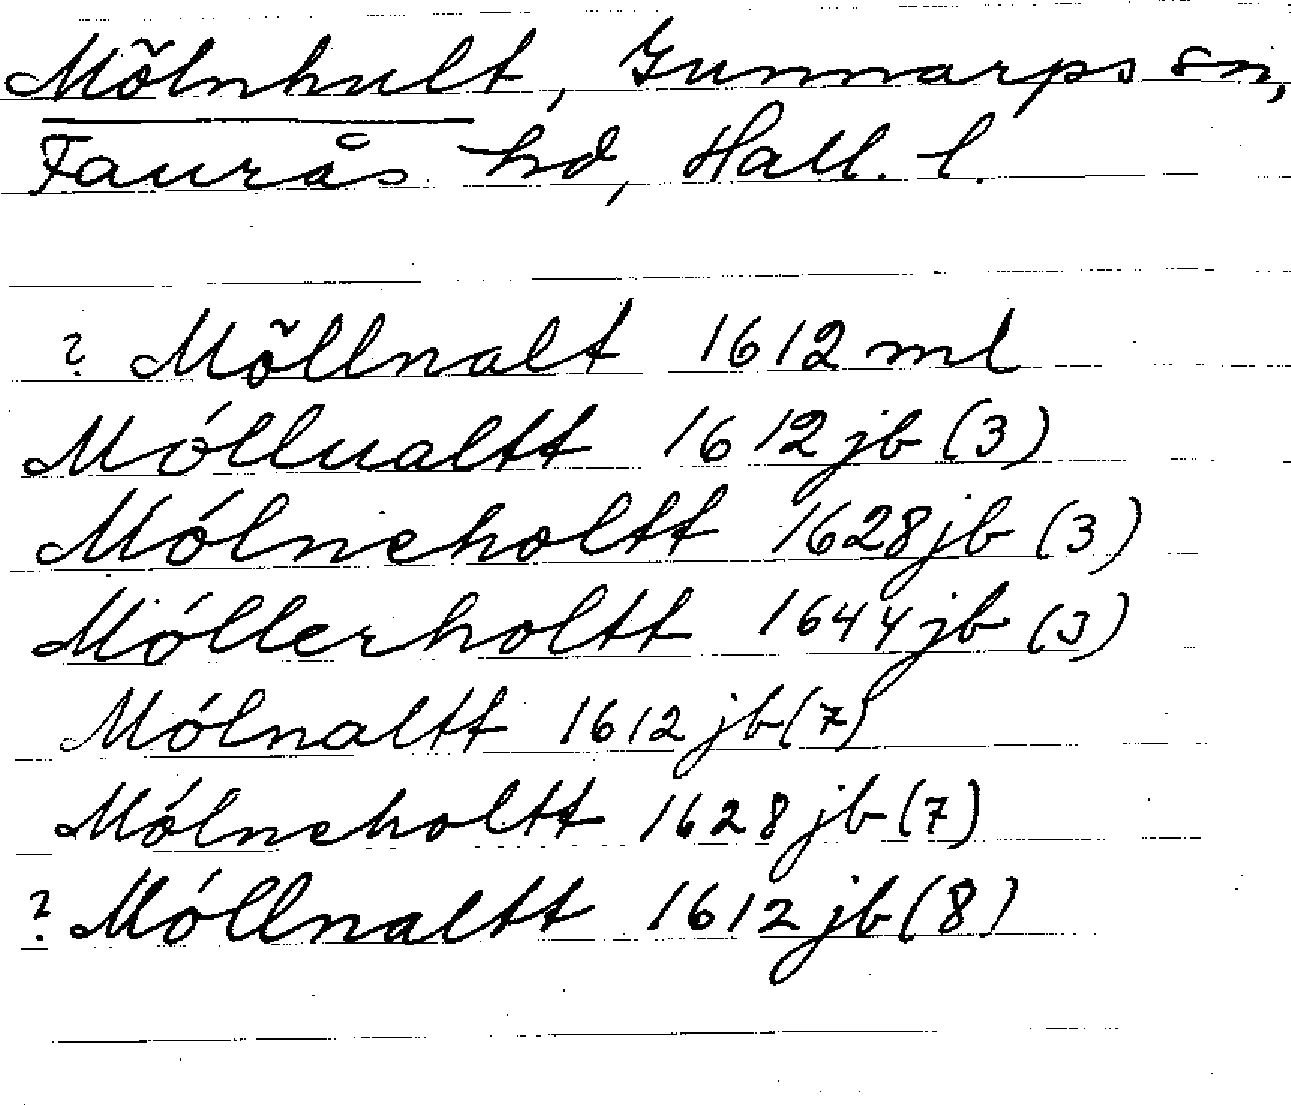 Mõlnhult, Gunnarps sn,
Faurås hd, Hall. l.
? Mõllnalt 1612 ml
Móllualtt 1612 jb (3)
Mólneholtt 1628 jb (3)
Móllerholtt 1644 jb (3)
Mólnaltt 1612 jb (7)
Mólneholtt 1628 jb (7)
? Móllnaltt 1612 jb (8)